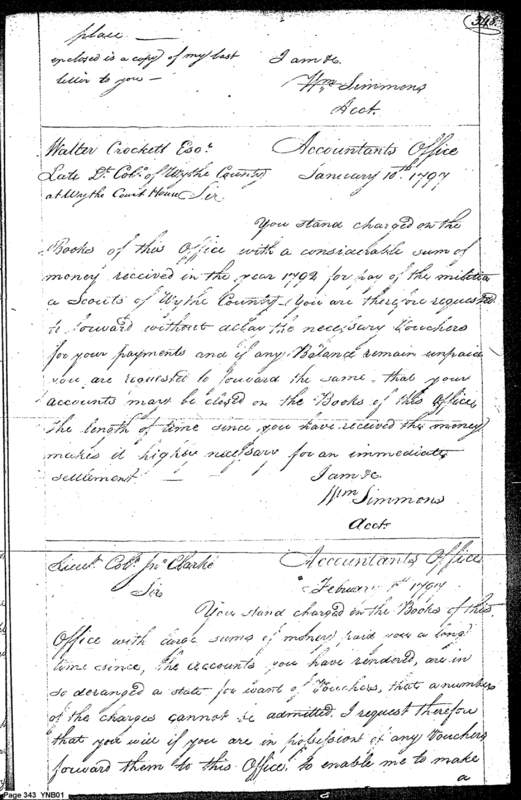 348.
place —
enclosed is a copy of my last
letter to you —
I am &c.
Wm. Simmons
Acct.
Walter Crockett Esqr.
Accountants Office
Late Lt. Colo. of Wythe County
January 10th. 1797
at Wythe Court House Sir
You stand charged on the
Books of this Office with a considerable sum of
money received in the year 1792 for pay of the militia
& Scouts of Wythe County. You are therefore requested
to forward without delay the necessary Vouchers
for your payments and if any Balance remain unpaid
you are requested to forward the same, that your
accounts may be closed on the Books of this Office,
the length of time since you have received the money
makes it highly necessary for an immediate
settlement — —
I am &c.
Wm Simmons
Acct.
Lieut. Colo. Jno. Clarke
Accountants Office
Sir
February 1797
You stand charged on the Books of this
Office with large sums of money paid you a long
time since, the accounts you have rendered, are in
so deranged a state for want of Vouchers, that a number
of the charges cannot be admitted. I request therefore
that you will if you are in possession of any Vouchers
forward them to this Office, to enable me to make
a
Page 343 YNB01